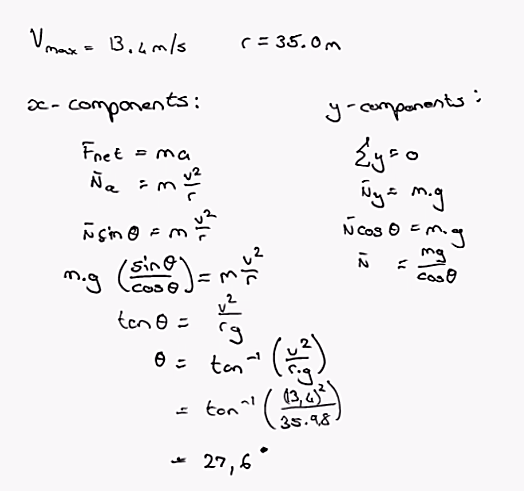 Vmax = 13.4m/s r = 35.0m
x-components:
Fnet = ma
N̄a = m v²/r
N̄ sin θ = m v²/r
m.g (sin θ/cos θ) = m v²/r
tan θ = v²/rg
θ = tan⁻¹ (v²/r.g)
= tan⁻¹ ((13,4)²/35.9,8)
= 27,6°
y-components:
Σy = 0
N̄y = m.g
N̄ cos θ = m.g
N̄ = mg/cos θ